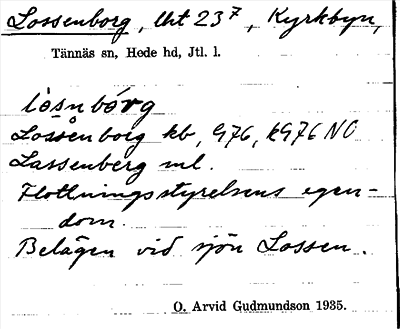 Lossenborg, lht 23⁷, Kyrkbyn,
Tännäs sn, Hede hd, Jtl. l.
lòsnbórg
Lossenborg kb, G76, kG76 NO
Lassenberg ml.
Flottningsstyrelsens egen-
dom.
Belägen vid sjön Lossen.
O. Arvid Gudmundson 1935.